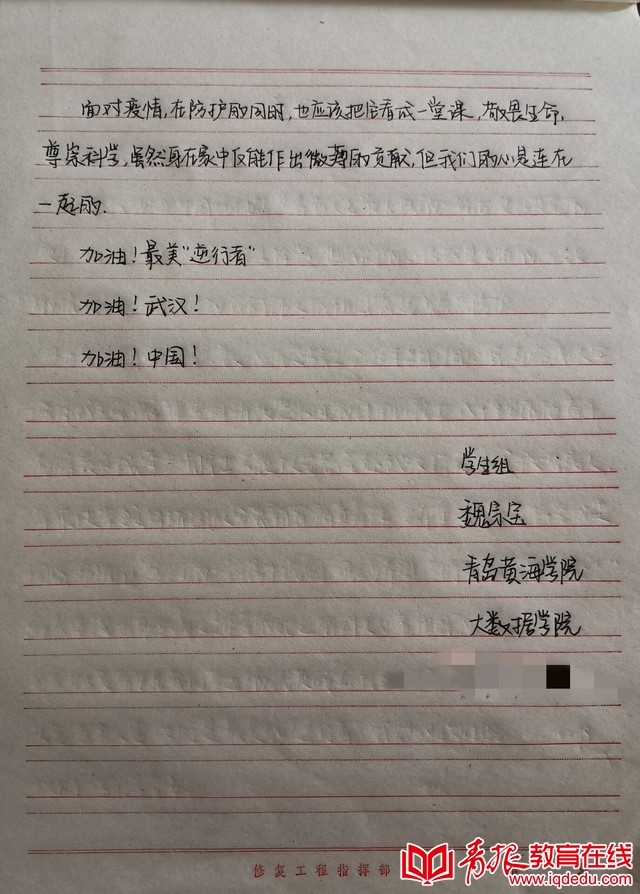 面对疫情,在防护的同时,也应该把它看成一堂课,敬畏生命,
尊崇科学,虽然身在家中只能作出微薄的贡献,但我们的心是连在
一起的.
加油!最美"逆行者"
加油!武汉!
加油!中国!
学生组
魏宗宝
青岛黄海学院
大数据学院
修复工程指挥部
青报教育在线
www.iqdedu.com